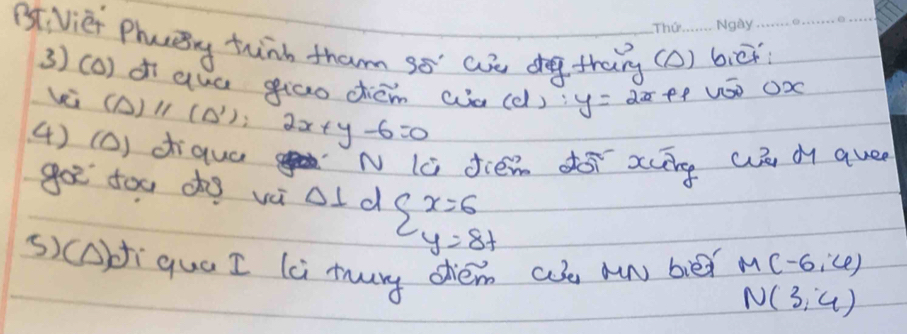 Thứ....... Ngày.......
BT: Viết phương trình tham số của đg thẳng (Δ) biết:
3) (Δ) đi qua giao điểm của (d): y = 2x + với Ox
và (Δ) // (Δ'): 2x + y - 6 = 0
4) (Δ) đi qua N là điểm đối xứng của M qua
gốc toạ độ và Δ ⊥ d { x = 6
y = 8t
5) (Δ) đi qua I là trung điểm của MN biết M(-6; 4)
N(3; 4)